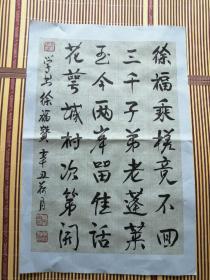 徐福乘槎竟不回
三千子弟老蓬莱
至今两岸留佳话
花萼城村次第開
徐福赞 辛丑荷月